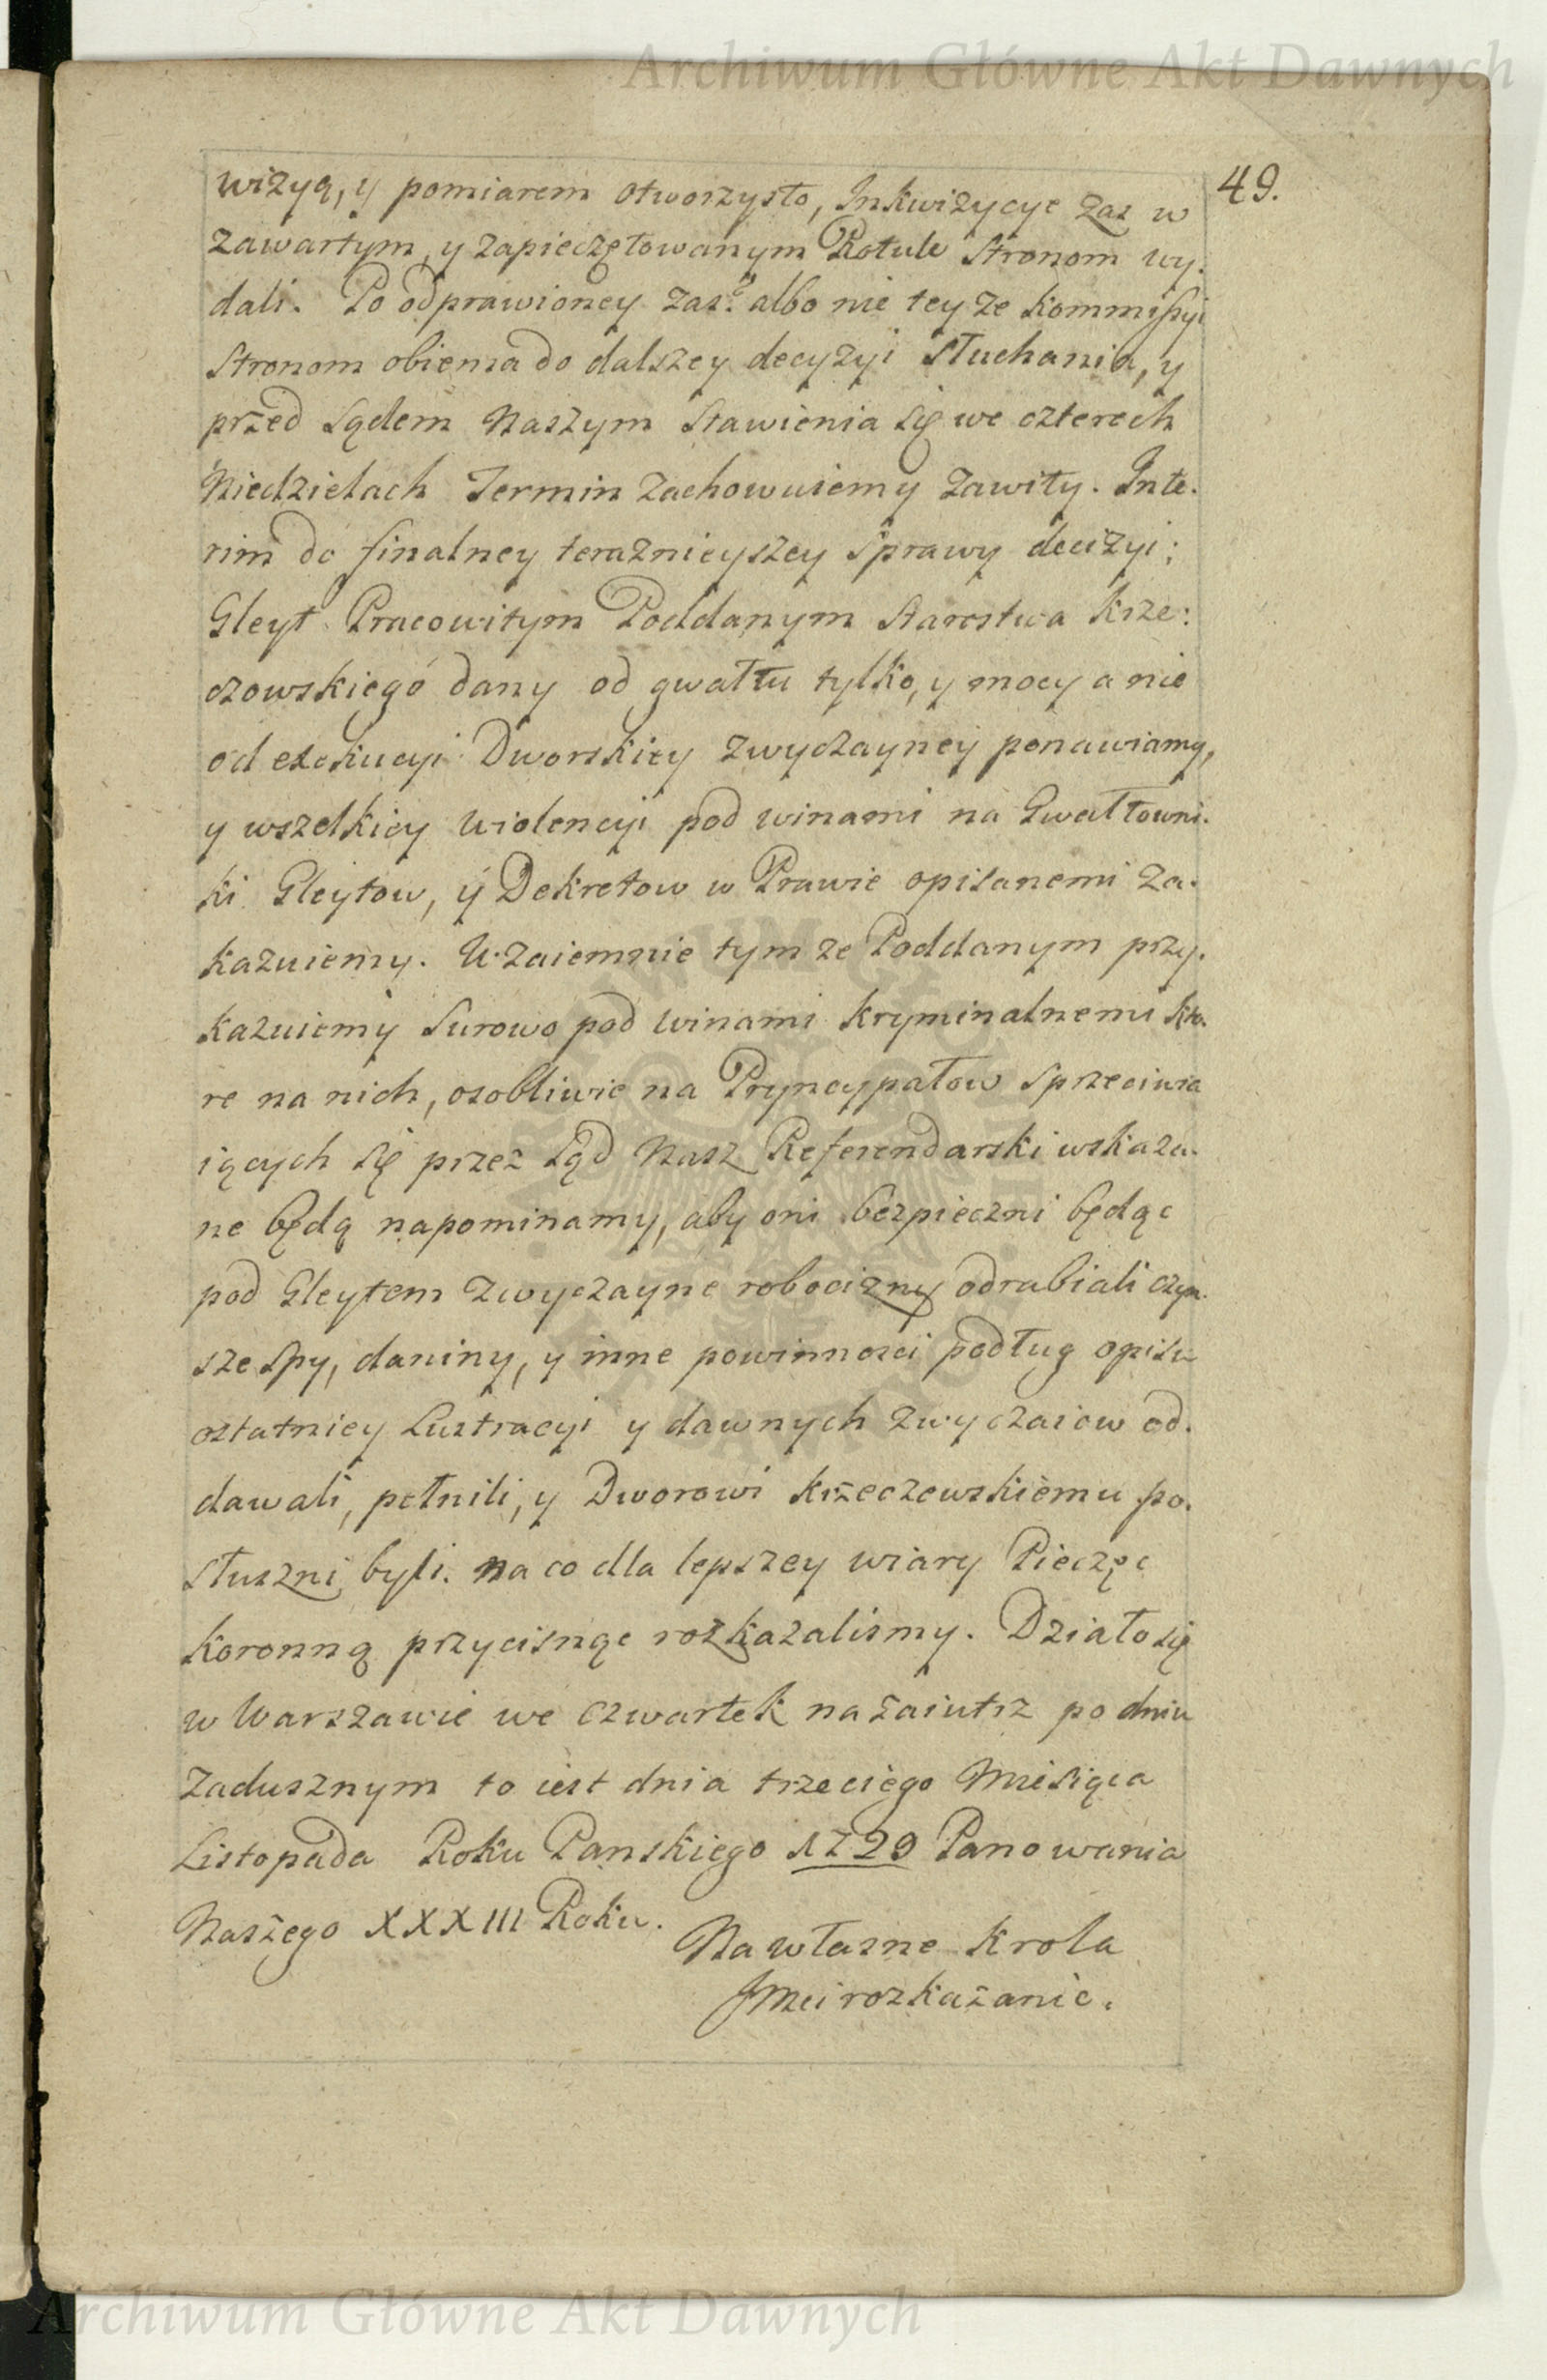 Archiwum Główne Akt Dawnych
49.
wizyą, y pomiarem otworzysto, Inkwizycye zas w
zawartym, y zapieczętowanym Rotule Stronom wy.
dali. Po odprawioney zas. albo nie teyze Kommissyi
Stronom obiema do dalszey decyzyi słuchania, y
przed Sądem Naszym Stawienia się we czterech
Niedzielach Termin zachowuiemy zawity. Inte.
rim do finalney teraznieyszey sprawy decizyi;
Gleyt Pracowitym Poddanym Starostwa Krze:
czowskiego dany od gwałtu tylko, y mocy a nie
od exekucyi Dworskiey zwyczayney ponawiamy,
y wszelkiey wiolencyi pod winami na Gwałtowni.
ki Gleytow, y Dekretow w Prawie opisanemi za.
kazuiemy. Wzaiemnie tym ze Poddanym przy.
kazuiemy surowo pod winami kryminalnemi kto.
re na nich, osobliwie na Pryncypałow sprzeciwia
iących się przez Sąd Nasz Referendarski wskaza.
ne będą napominamy, aby oni bezpieczni będąc
pod Gleytem zwyczayne robocizny odrabiali czyn.
sze spy, daniny, y inne powinnosci podług opisu
ostatniey Lustracyi y dawnych zwyczaiow od.
dawali, pełnili, y Dworowi Krzeczewskiemu po.
słuszni byli. na co dla lepszey wiary Pieczęc
Koronną przycisnąc rozkazalismy. Działo się
w Warszawie we Czwartek nazaiutrz po dniu
Zadusznym to iest dnia trzeciego Miesiąca
Listopada Roku Panskiego 1729 Panowania
Naszego XXXIII Roku.
Na własne Krola
Jmci rozkazanie.
Archiwum Główne Akt Dawnych